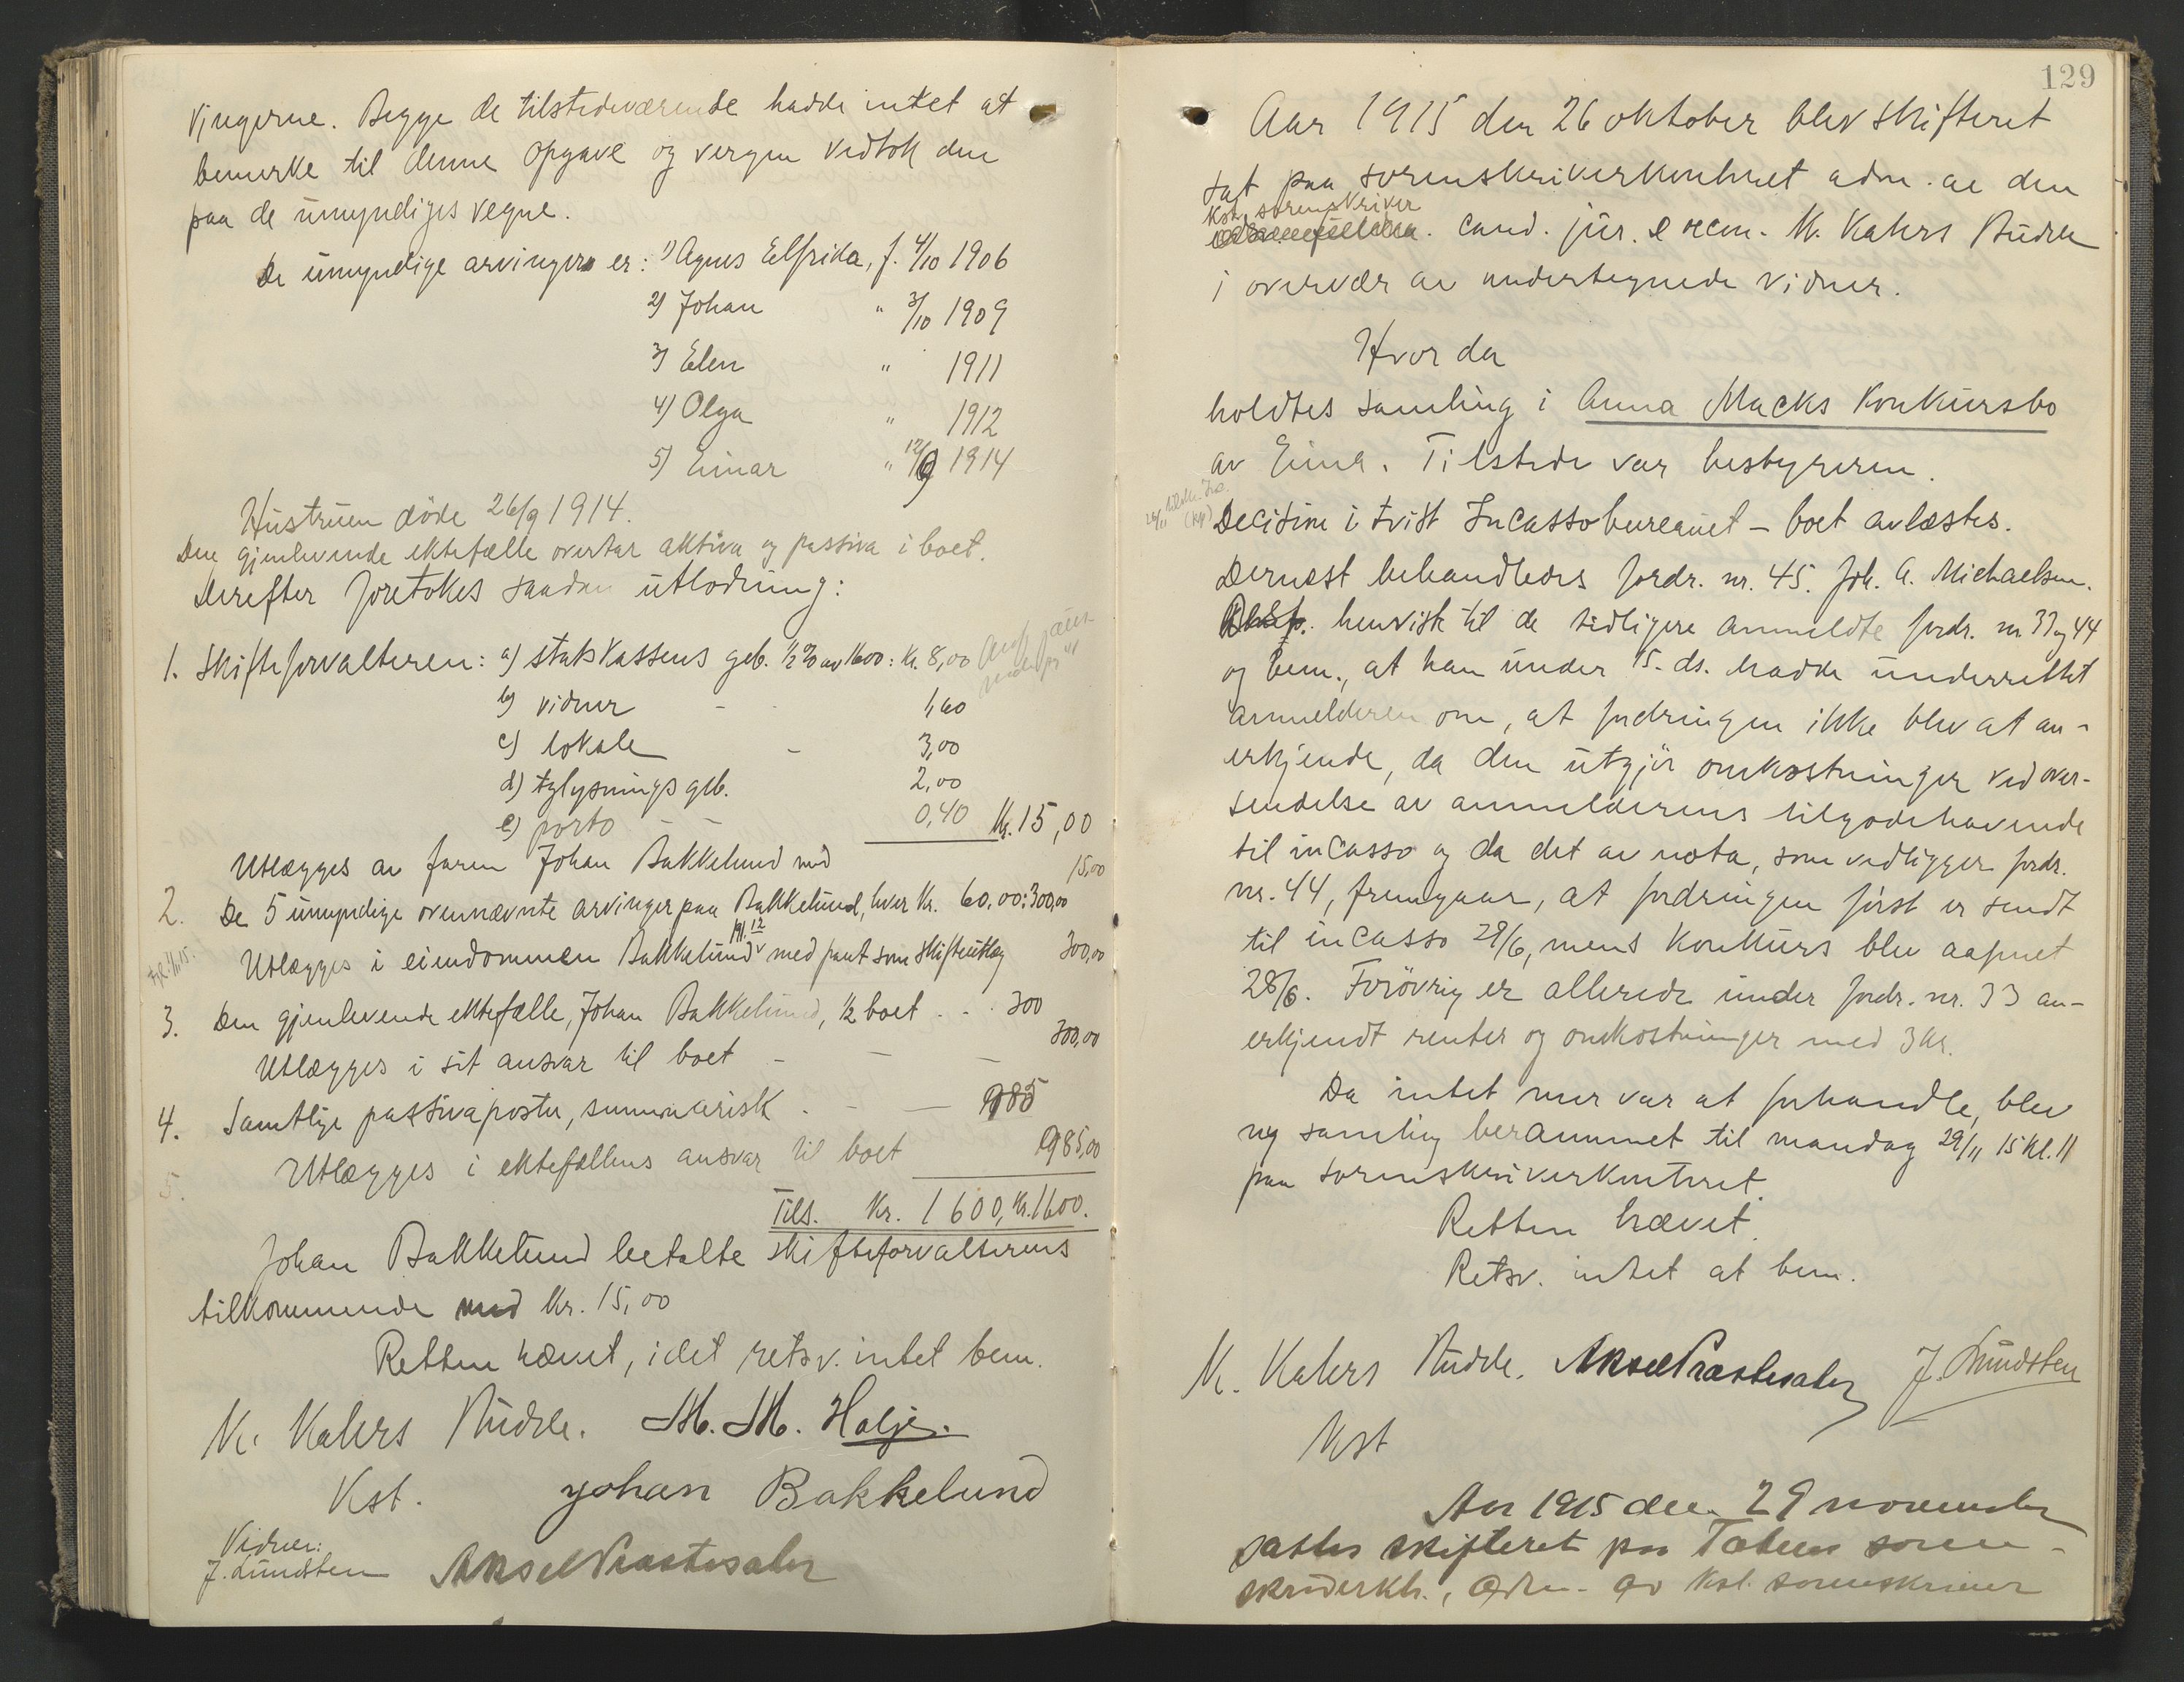 vingerne. Begge de tilstedeværende hadde intet at
bemerke til denne opgave og vergen vedtok den
paa de umyndiges vegne.
De umyndige arvinger er: 1) Agnes Elfrida, f. 4/10 1906
2) Johan " 3/10 1909
3) Elen " 1911
4) Olga " 1912
5) Einar " 12/9 1914
Hustruen døde 26/9 1914.
Den gjenlevende ektefælle overtar aktiva og passiva i boet.
Derefter foretokes saadan utlodning:
1. Skifteforvalteren: a) statskassens geb. ½ % av 1600: kr. 8,00
b) vidner - - 1,60
c) lokale - 3,00
d) tglysnings geb. 2,00
e) porto - - 0,40 Kr. 15,00
Utlægges av faren Johan Bakkelund med 15,00
2. De 5 umyndige ovennævnte arvinger paa Bakkelund, hver kr. 60,00: 300,00
Utlægges i eiendommen Bakkelund med pant som skifteutlæg 300,00
3. Den gjenlevende ektefælle, Johan Bakkelund, ½ boet . . . 300
Utlægges i sit ansvar til boet - - - 300,00
4. Samtlige passivaposter, summarisk . - - 985
Utlægges i ektefællens ansvar til boet 985,00
5.
Tils. Kr. 1600, Kr. 1600.
Johan Bakkelund betalte skifteforvalterens
tilkommende med kr. 15,00
Retten hævet, idet retsv. intet bem.
K. Kahrs Budde. M. M. Halje.
Kst. Johan Bakkelund
Vidner:
J. Lundsten Aksel Præstesæter
129
Aar 1915 den 26 oktober blev skifteret
sat paa sorenskriverkontoret adm. av den
kst. sorenskriver
cand. jur. e oecon. K. Kahrs Budde
i overvær av undertegnede vidner.
Hvor da
holdtes samling i Anna Macks Konkursbo
av Eina. Tilstede var bestyreren.
Decision i tvist Incassobureauet – boet avlæstes.
Dernæst behandledes fordr. nr. 45. Joh. A. Michaelsen.
Best. henviste til de tidligere anmeldte fordr. nr. 33 og 44
og bem., at han under 15. ds. hadde underrettet
anmelderen om, at fordringen ikke blev at an-
erkjende, da den utgjør omkostninger ved over-
sendelse av anmelderens tilgodehavende
til incasso og da det av nota, som vedligger fordr.
nr. 44, fremgaar, at fordringen først er sendt
til incasso 29/6, mens konkurs blev aapnet
28/6. Forøvrig er allerede under fordr. nr. 33 an-
erkjendt renter og omkostninger med 3 kr.
Da intet mer var at forhandle, blev
ny samling berammet til mandag 29/11 15 kl. 11
paa sorenskriverkontoret.
Retten hævet.
Retsv. intet at bem.
K. Kahrs Budde. Aksel Præstesæter J. Lundsten
Kst
Aar 1915 den 29 november
sattes skifteret paa Totens soren-
skriverktr., adm. av kst. sorenskriver